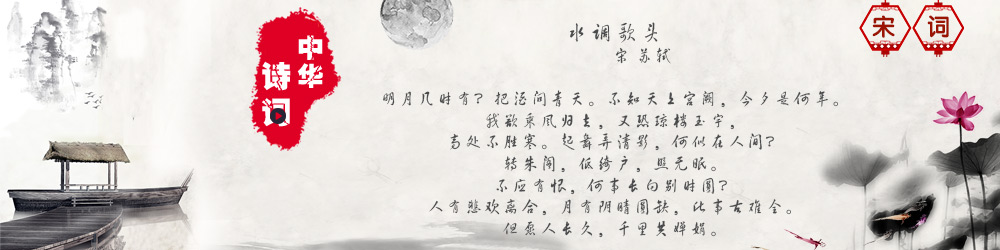 中华
诗词
水调歌头
宋苏轼
明月几时有？把酒问青天。不知天上宫阙，今夕是何年。
我欲乘风归去，又恐琼楼玉宇，
高处不胜寒。起舞弄清影，何似在人间？
转朱阁，低绮户，照无眠。
不应有恨，何事长向别时圆？
人有悲欢离合，月有阴晴圆缺，此事古难全。
但愿人长久，千里共婵娟。
宋词